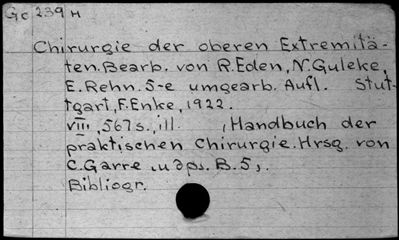 Gc 239 H
Chirurgie der oberen Extremitä-
ten. Bearb. von R. Eden, N. Guleke,
E. Rehn. 5-e umgearb. Aufl. Stut-
tgart, F. Enke, 1922.
VIII, 567 s., ill. , Handbuch der
praktischen Chirurgie. Hrsg. von
C. Garre, u др. B. 5,.
Bibliogr.